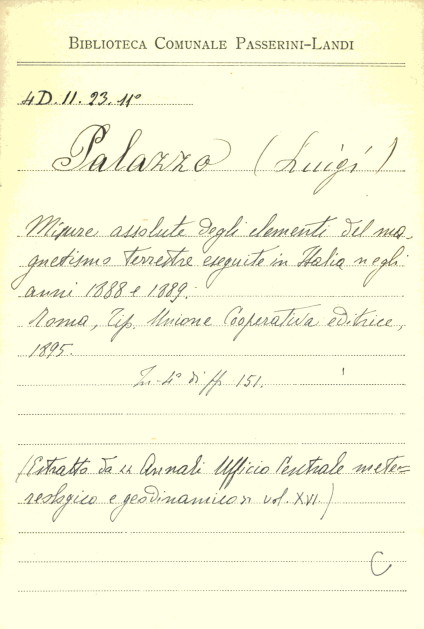 BIBLIOTECA COMUNALE PASSERINI-LANDI
4D. II. 23. 11°
Palazzo (Luigi)
Misure assolute degli elementi del ma-
gnetismo terrestre eseguite in Italia negli
anni 1888 e 1889.
Roma, Tip. Unione Cooperativa editrice,
1895.
In-4° di ff 151.
(Estratto da « Annali Ufficio Centrale mete=
reologico e geodinamico » vol. XVI.)
C